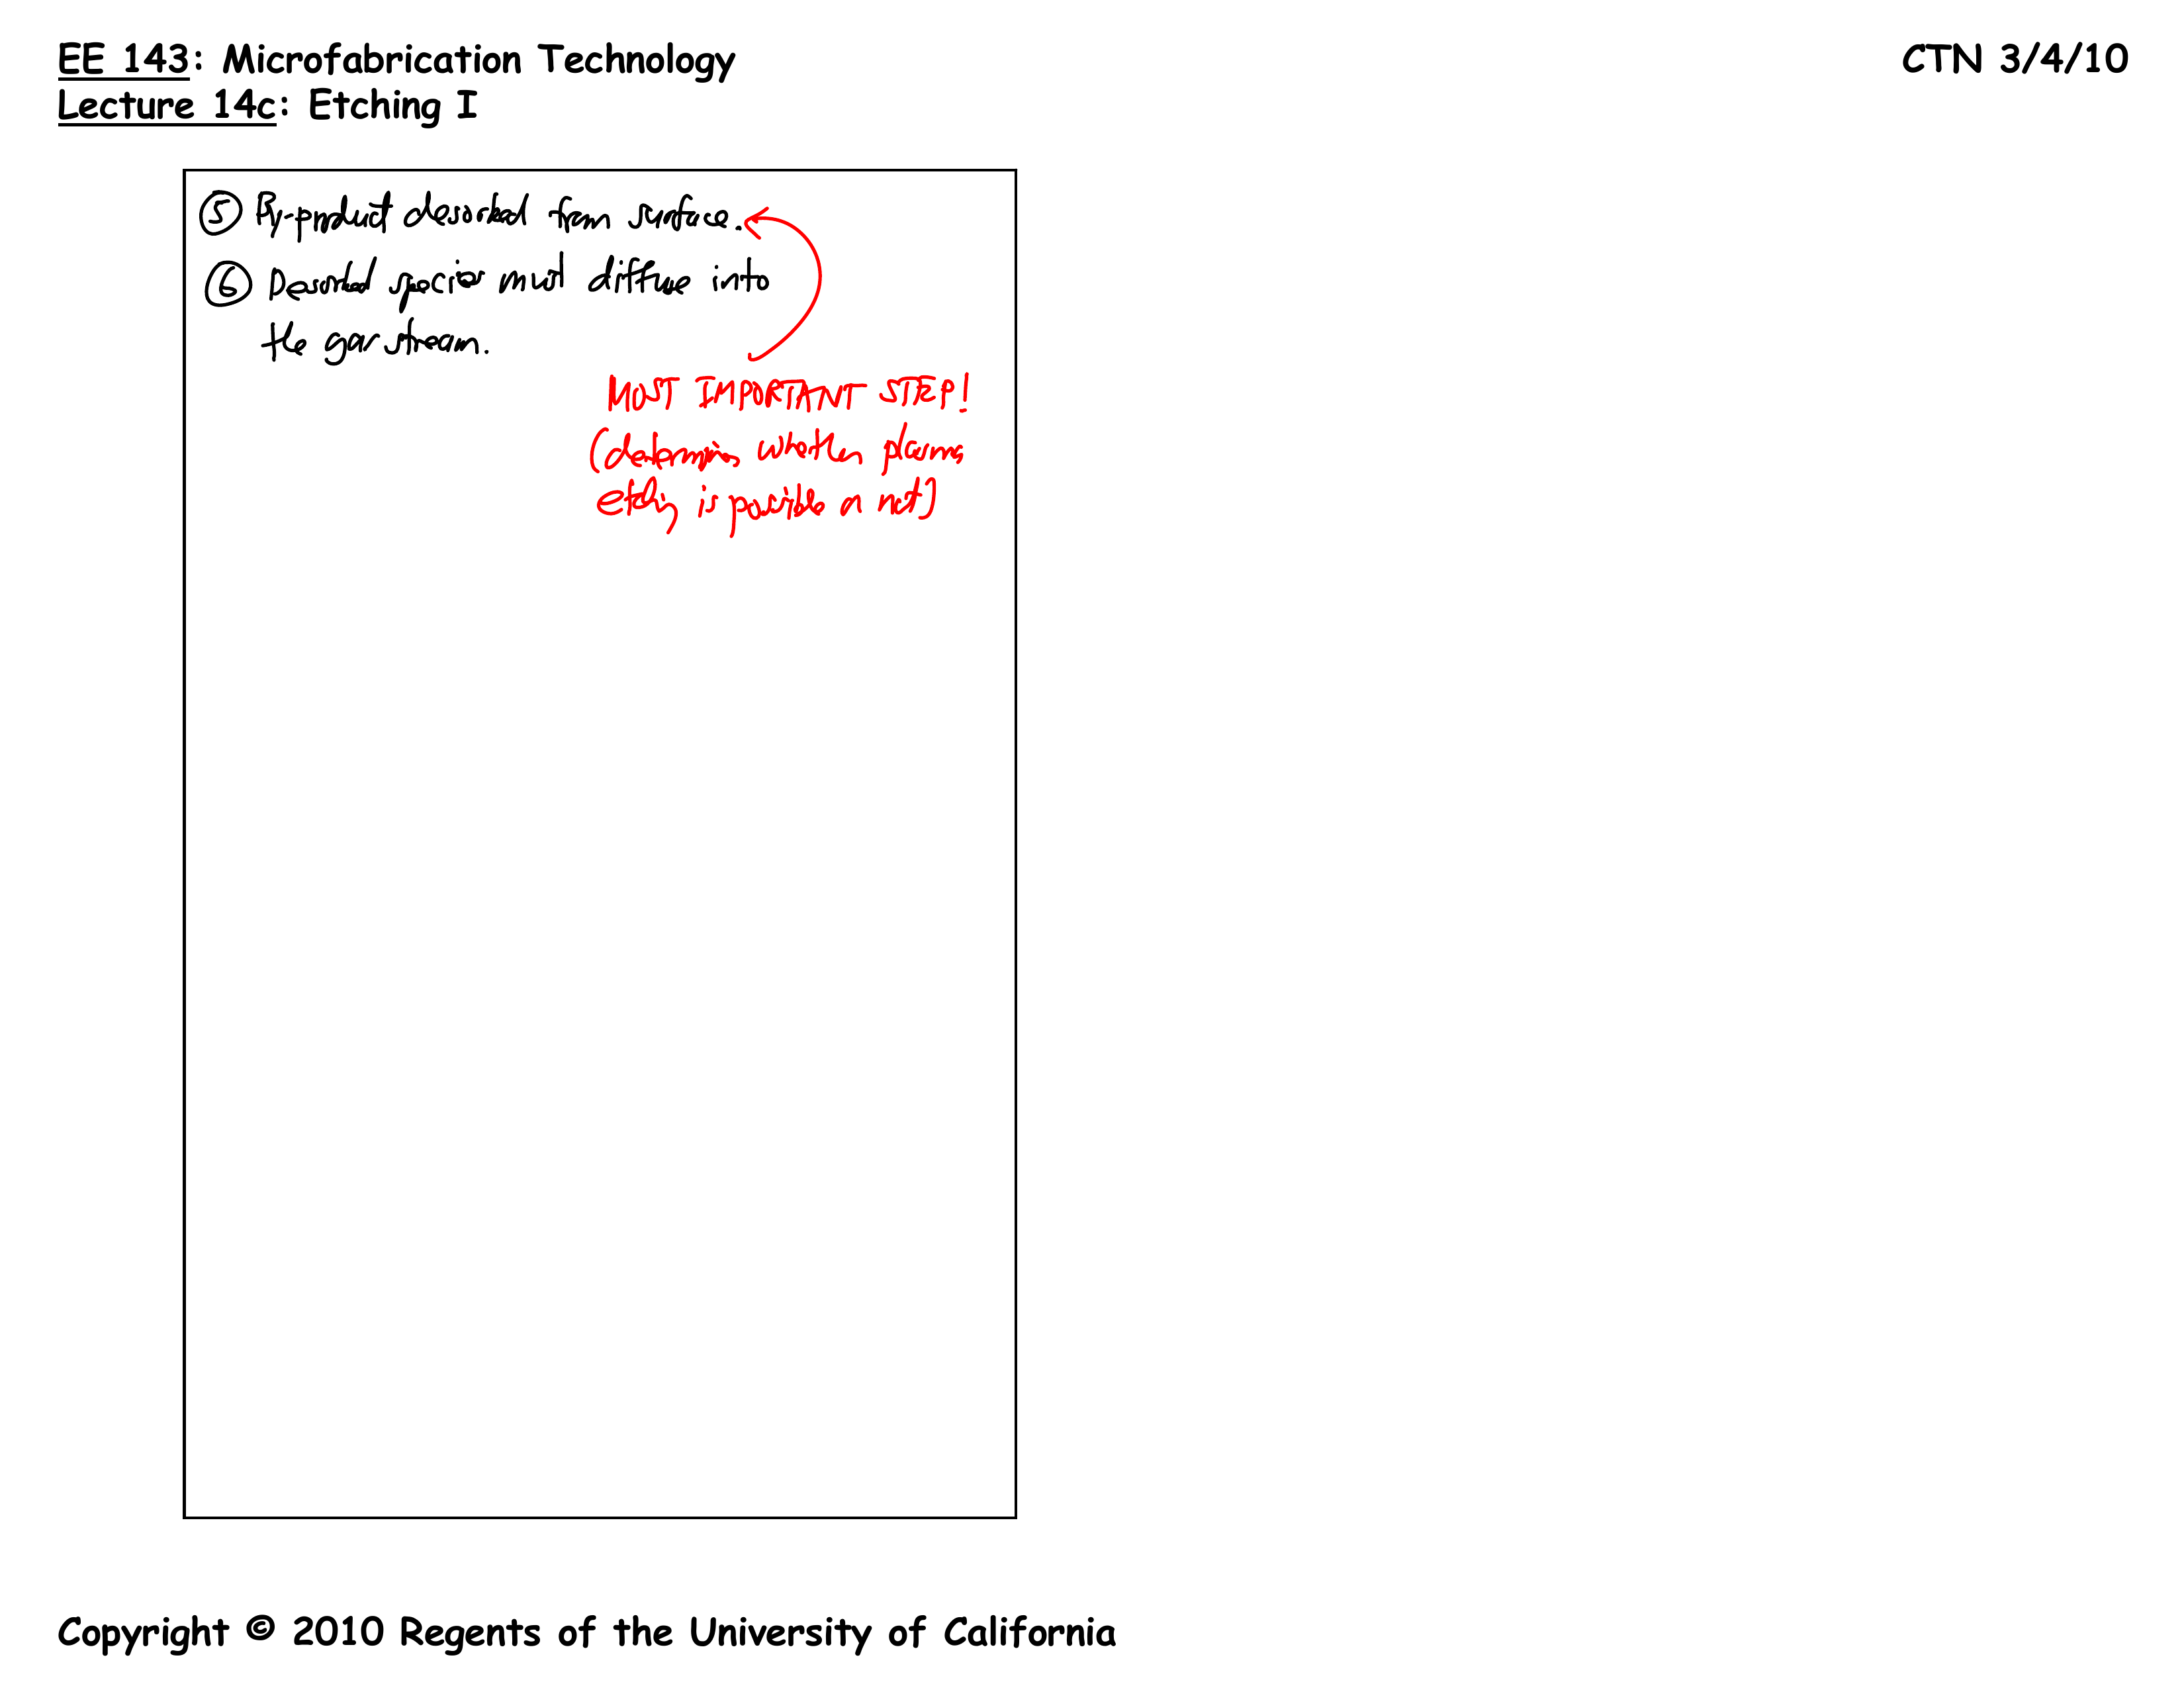 EE 143: Microfabrication Technology
CTN 3/4/10
Lecture 14c: Etching I
⑤ By-product desorbed from surface.
⑥ Desorbed species must diffuse into
the gas stream.
MOST IMPORTANT STEP!
(determines whether plasma
etching is possible or not)
Copyright © 2010 Regents of the University of California